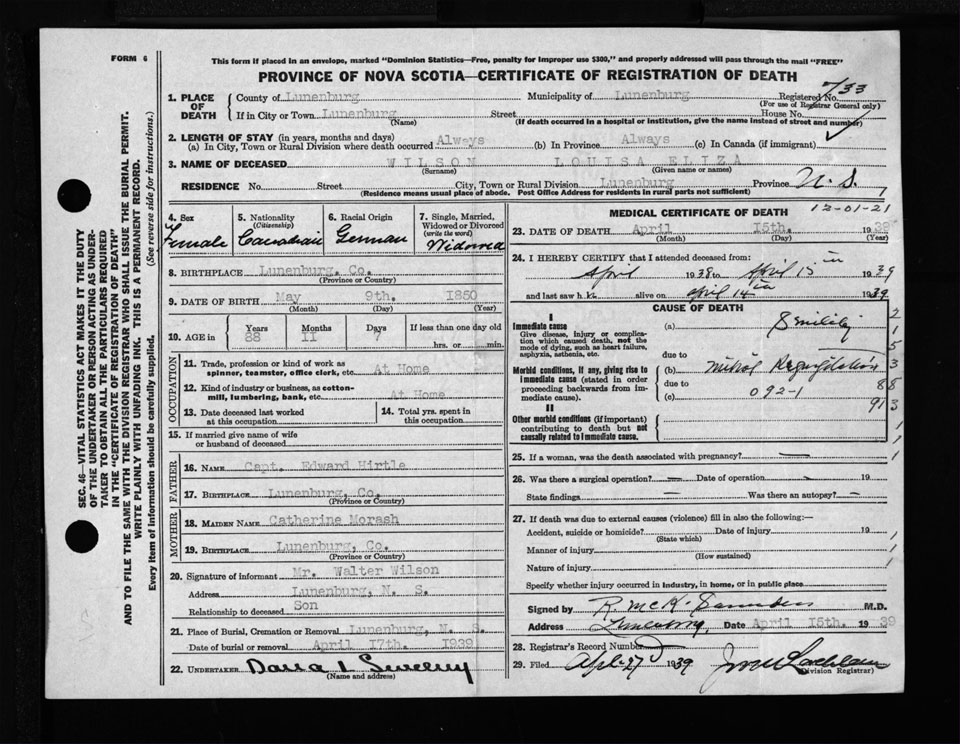 FORM 6
This form if placed in an envelope, marked "Dominion Statistics—Free, penalty for improper use $300," and properly addressed will pass through the mail "FREE"
PROVINCE OF NOVA SCOTIA—CERTIFICATE OF REGISTRATION OF DEATH
1. PLACE OF DEATH
County of Lunenburg Municipality of Lunenburg Registered No. 733
(For use of Registrar General only)
If in City or Town Lunenburg Street House No.
(Name) (If death occurred in a hospital or institution, give the name instead of street and number)
2. LENGTH OF STAY (in years, months and days)
(a) In City, Town or Rural Division where death occurred Always (b) In Province Always (c) In Canada (if immigrant)
3. NAME OF DECEASED WILSON LOUISA ELIZA
(Surname) (Given name or names)
RESIDENCE No. Street City, Town or Rural Division Lunenburg Province N. S.
(Residence means usual place of abode. Post Office Address for residents in rural parts not sufficient)
SEC. 46—VITAL STATISTICS ACT MAKES IT THE DUTY
OF THE UNDERTAKER OR PERSON ACTING AS UNDER-
TAKER TO OBTAIN ALL THE PARTICULARS REQUIRED
IN THE "CERTIFICATE OF REGISTRATION OF DEATH"
AND TO FILE THE SAME WITH THE DIVISION REGISTRAR WHO SHALL ISSUE THE BURIAL PERMIT.
WRITE PLAINLY WITH UNFADING INK. THIS IS A PERMANENT RECORD.
Every item of information should be carefully supplied. (See reverse side for instructions.)
4. Sex
Female
5. Nationality
(Citizenship)
Canadian
6. Racial Origin
German
7. Single, Married,
Widowed or Divorced
(write the word)
Widowed
8. BIRTHPLACE Lunenburg, Co.
(Province or Country)
9. DATE OF BIRTH May 9th. 1850
(Month) (Day) (Year)
10. AGE in
Years Months Days If less than one day old
88 II 7 hrs. or min.
OCCUPATION
11. Trade, profession or kind of work as
spinner, teamster, office clerk, etc. At Home
12. Kind of industry or business, as cotton-
mill, lumbering, bank, etc. At Home
13. Date deceased last worked
at this occupation
14. Total yrs. spent in
this occupation
15. If married give name of wife
or husband of deceased
FATHER
16. NAME Capt. Edward Hirtle
17. BIRTHPLACE Lunenburg, Co.
(Province or Country)
MOTHER
18. MAIDEN NAME Catherine Morash
19. BIRTHPLACE Lunenburg, Co.
(Province or Country)
20. Signature of informant Mr. Walter Wilson
Address Lunenburg, N. S.
Relationship to deceased Son
21. Place of Burial, Cremation or Removal Lunenburg, N. S.
Date of burial or removal April 17th. 1939
22. UNDERTAKER
(Name and address)
MEDICAL CERTIFICATE OF DEATH
12-01-21
23. DATE OF DEATH April 15th. 1939
(Month) (Day) (Year)
24. I HEREBY CERTIFY that I attended deceased from:
April 1938 to April 15th 1939
and last saw her alive on April 14th 1939
CAUSE OF DEATH
I
Immediate cause
Give disease, injury or complica-
tion which caused death, not the
mode of dying, such as heart failure,
asphyxia, asthenia, etc.
(a) Senility
due to
Morbid conditions, if any, giving rise to
immediate cause (stated in order
proceeding backwards from im-
mediate cause).
(b) Mitral Regurgitation
due to
(c) 092-1
II
Other morbid conditions (if important)
contributing to death but not
causally related to immediate cause.
2
1
5
3
88
913
1
1
25. If a woman, was the death associated with pregnancy? —
26. Was there a surgical operation? — Date of operation — 19
State findings — Was there an autopsy? —
27. If death was due to external causes (violence) fill in also the following:—
Accident, suicide or homicide? Date of injury 19
(State which)
Manner of injury
(How sustained)
Nature of injury
Specify whether injury occurred in industry, in home, or in public place
Signed by R. McK. Saunders M.D.
Address Lunenburg, Date April 15th. 1939
28. Registrar's Record Number
29. Filed Apl-27 1939
(Division Registrar)